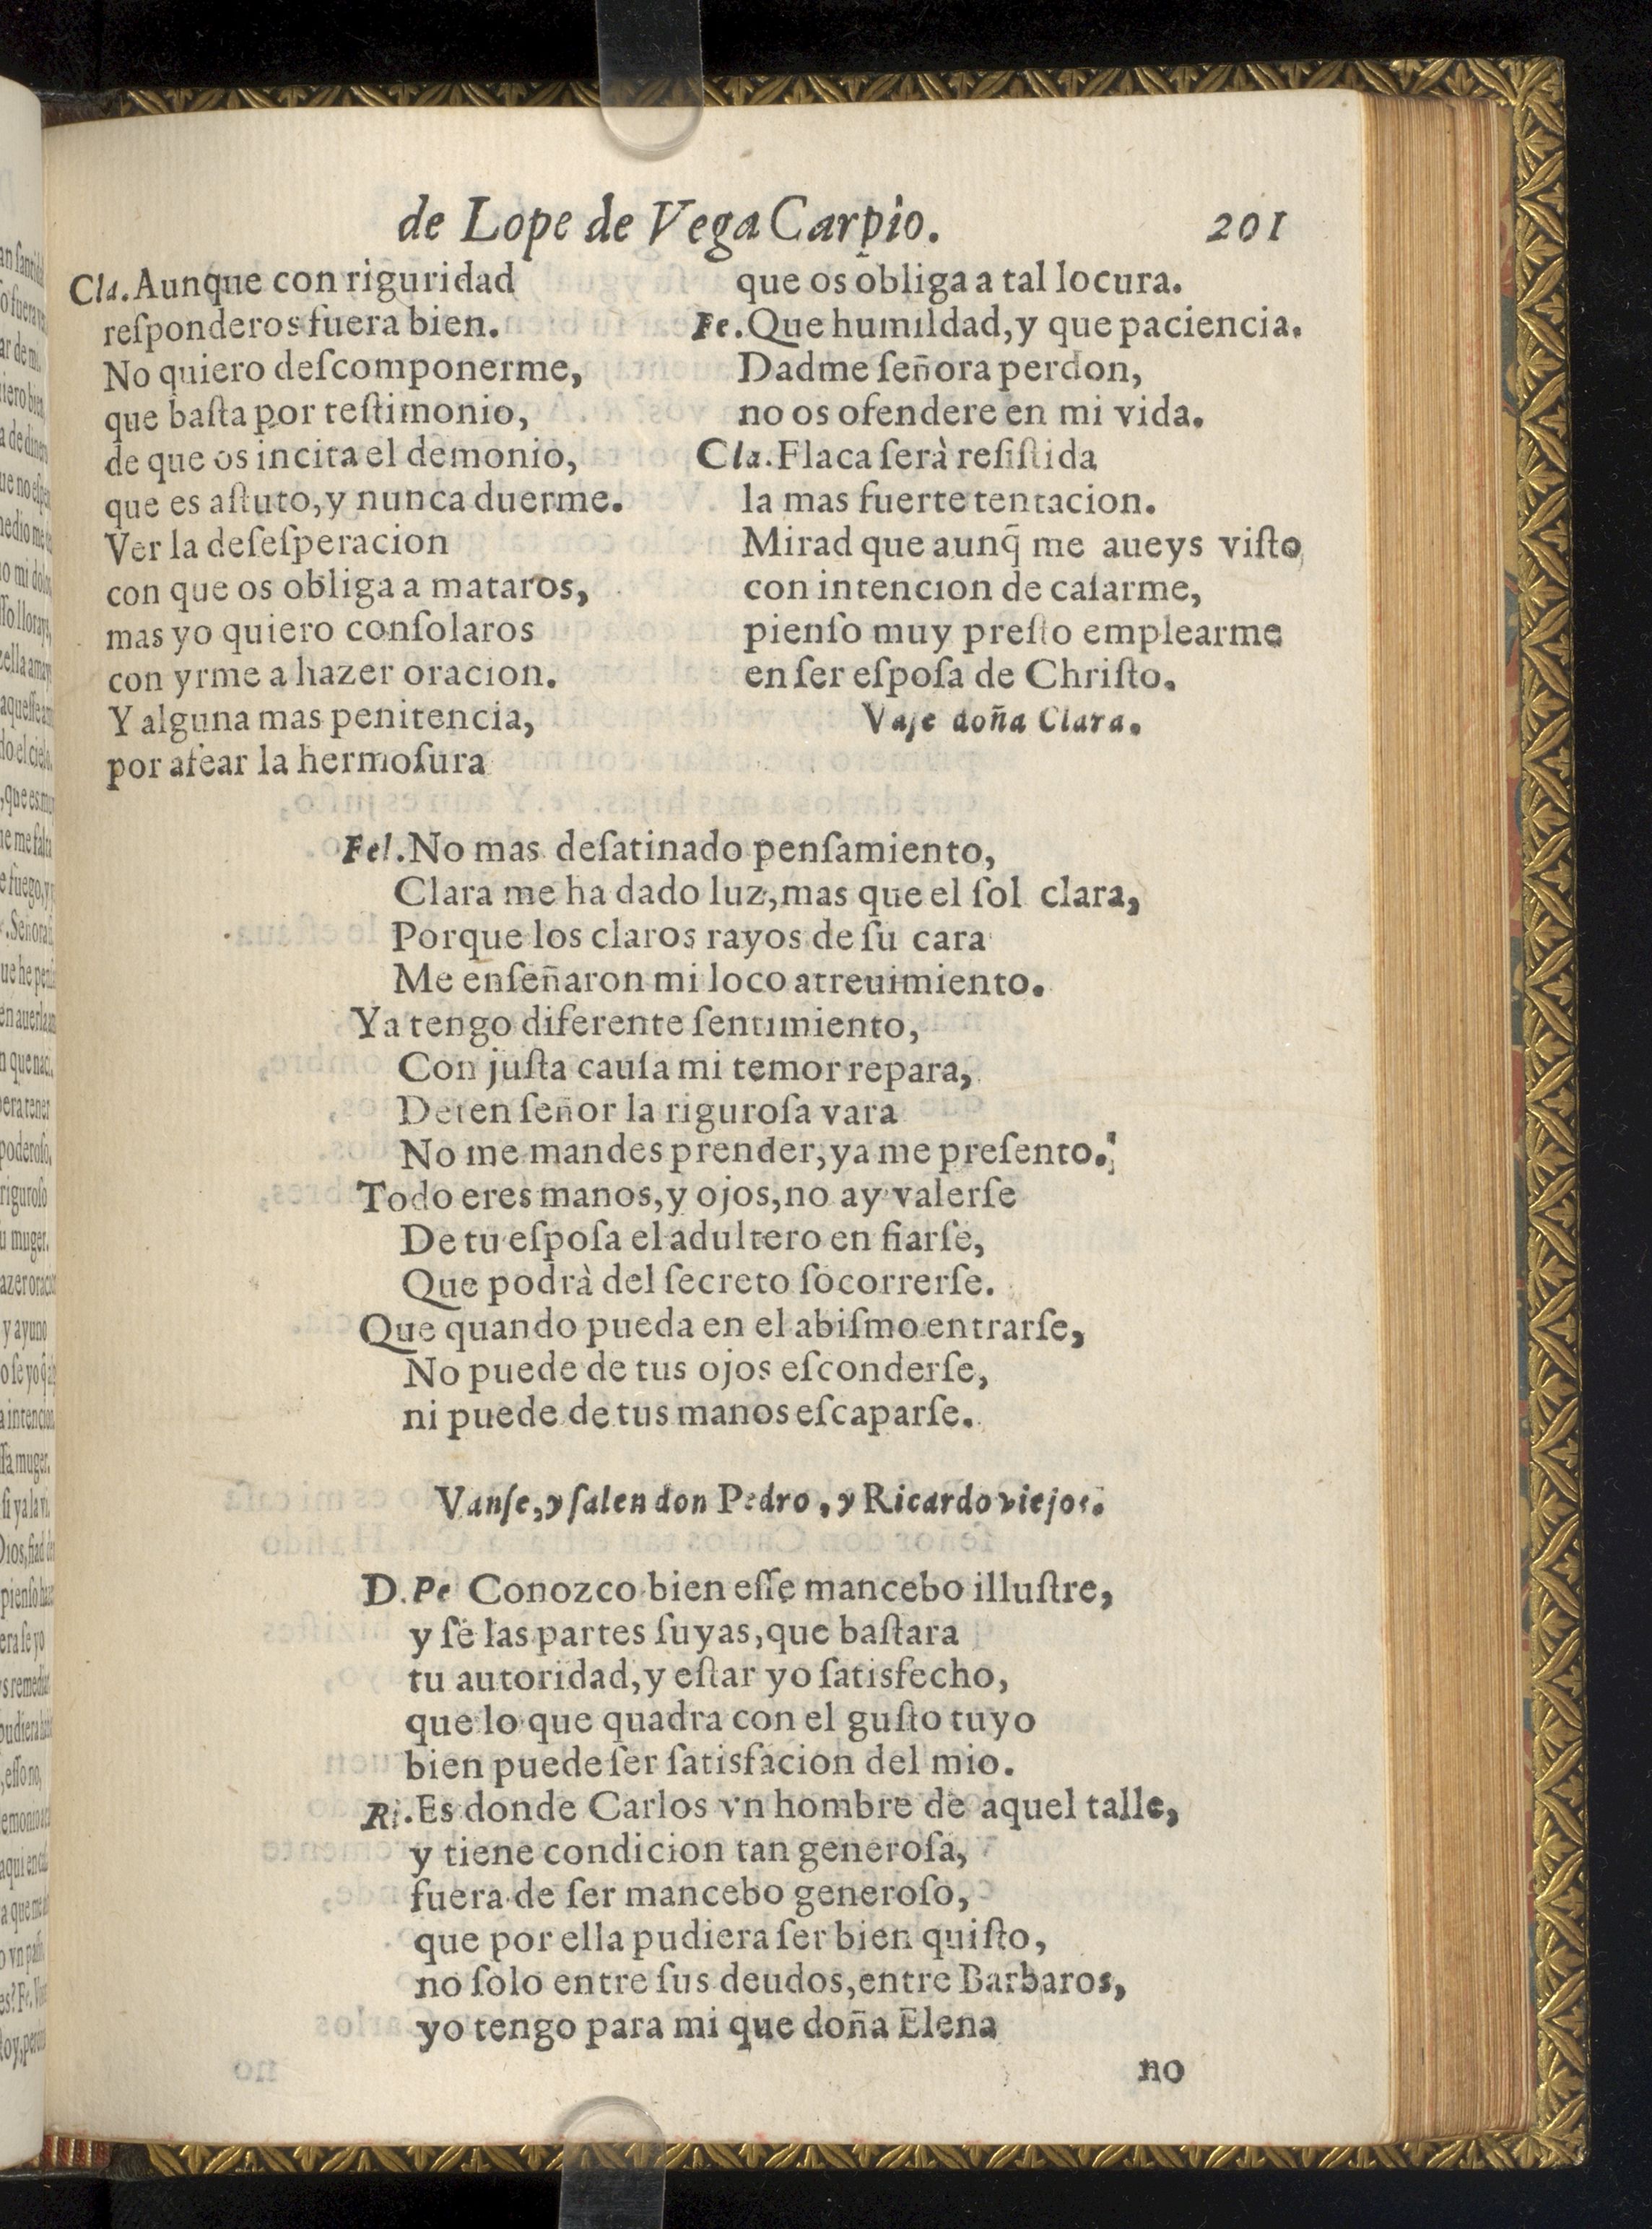 de Lope de Vega Carpio. 201
Cla. Aunque con riguridad
reſponderos fuera bien.
No quiero deſcomponerme,
que baſta por teſtimonio,
de que os incita el demonio,
que es aſtuto, y nunca duerme.
Ver la deſeſperacion
con que os obliga a mataros,
mas yo quiero conſolaros
con yrme a hazer oracion.
Y alguna mas penitencia,
por afear la hermoſura
que os obliga a tal locura.
Fe. Que humildad, y que paciencia.
Dadme ſeñora perdon,
no os ofendere en mi vida.
Cla. Flaca ſerà reſiſtida
la mas fuerte tentacion.
Mirad que aunq̃ me aueys viſto
con intencion de caſarme,
pienſo muy preſto emplearme
en ſer eſpoſa de Chriſto.
Vaſe doña Clara.
Fel. No mas deſatinado penſamiento,
Clara me ha dado luz, mas que el ſol clara,
Porque los claros rayos de ſu cara
Me enſeñaron mi loco atreuimiento.
Ya tengo diferente ſentimiento,
Con juſta cauſa mi temor repara,
Deten ſeñor la riguroſa vara
No me mandes prender, ya me preſento.
Todo eres manos, y ojos, no ay valerſe
De tu eſpoſa el adultero en fiarſe,
Que podrà del ſecreto ſocorrerſe.
Que quando pueda en el abiſmo entrarſe,
No puede de tus ojos eſconderſe,
ni puede de tus manos eſcaparſe.
Vanſe, y ſalen don Pedro, y Ricardo viejos.
D. Pe Conozco bien eſſe mancebo illuſtre,
y ſé las partes ſuyas, que baſtara
tu autoridad, y eſtar yo ſatisfecho,
que lo que quadra con el guſto tuyo
bien puede ſer ſatisfacion del mio.
Ri. Es donde Carlos vn hombre de aquel talle,
y tiene condicion tan generoſa,
fuera de ſer mancebo generoſo,
que por ella pudiera ſer bien quiſto,
no ſolo entre ſus deudos, entre Barbaros,
yo tengo para mi que doña Elena
no